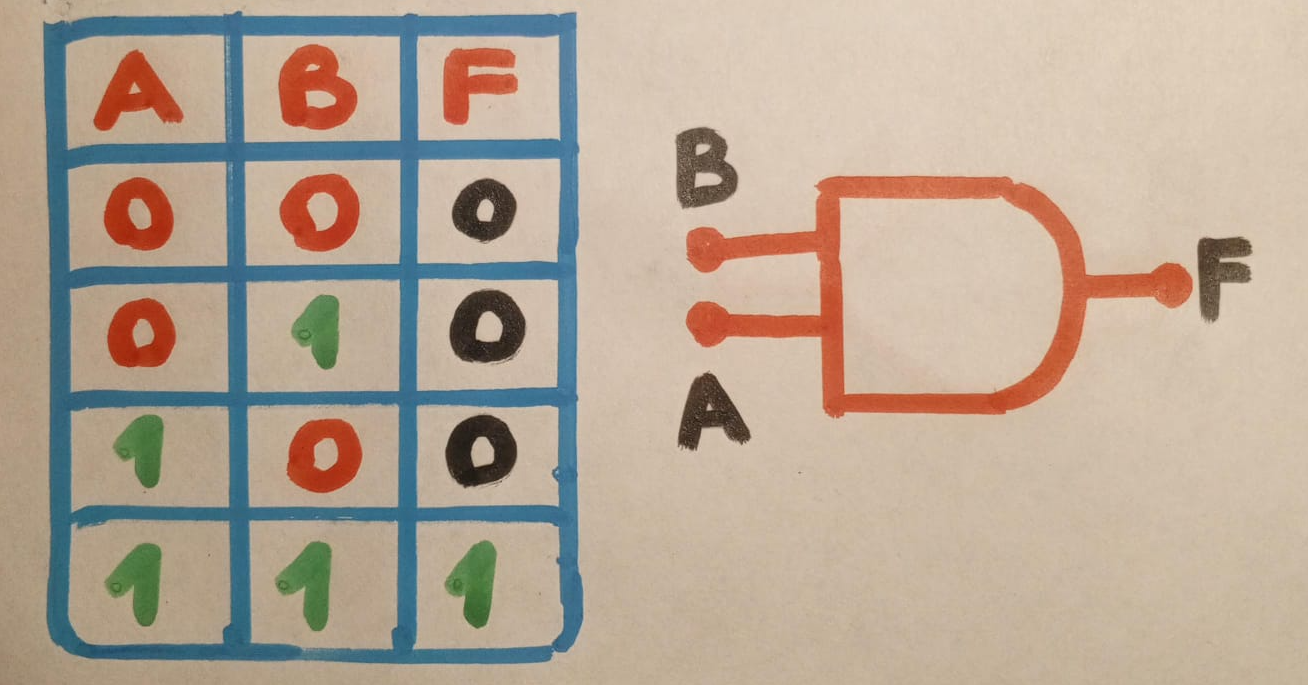 A B F
0 0 0
0 1 0
1 0 0
1 1 1
B
A
F